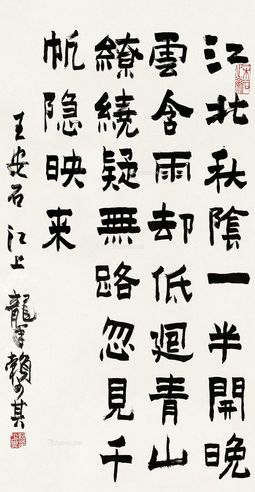 江北秋陰一半開晚
雲含雨却低迴青山
繚繞疑無路忽見千
帆隐映来
王安石江上龍年賴少其